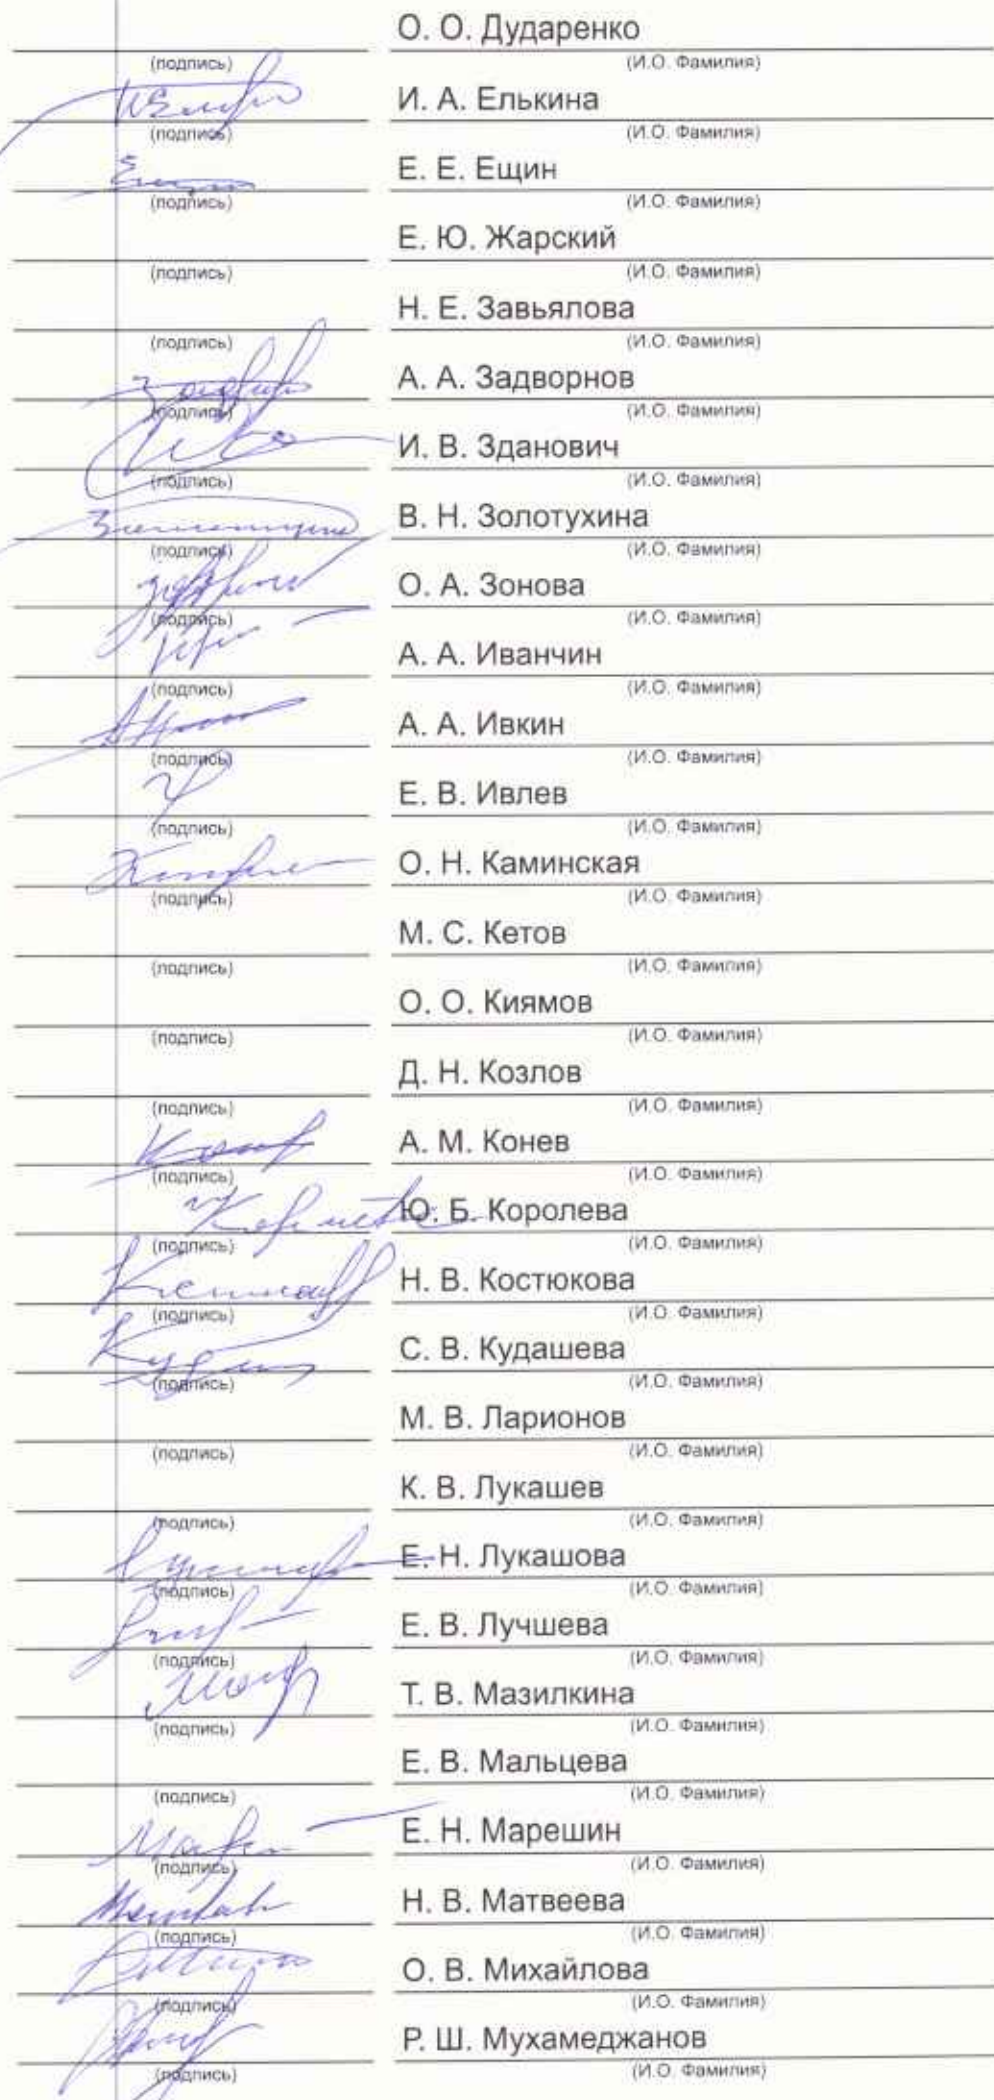 О. О. Дударенко
(подпись) (И.О. Фамилия)
И. А. Елькина
(подпись) (И.О. Фамилия)
Е. Е. Ещин
(подпись) (И.О. Фамилия)
Е. Ю. Жарский
(подпись) (И.О. Фамилия)
Н. Е. Завьялова
(подпись) (И.О. Фамилия)
А. А. Задворнов
(подпись) (И.О. Фамилия)
И. В. Зданович
(подпись) (И.О. Фамилия)
В. Н. Золотухина
(подпись) (И.О. Фамилия)
О. А. Зонова
(подпись) (И.О. Фамилия)
А. А. Иванчин
(подпись) (И.О. Фамилия)
А. А. Ивкин
(подпись) (И.О. Фамилия)
Е. В. Ивлев
(подпись) (И.О. Фамилия)
О. Н. Каминская
(подпись) (И.О. Фамилия)
М. С. Кетов
(подпись) (И.О. Фамилия)
О. О. Киямов
(подпись) (И.О. Фамилия)
Д. Н. Козлов
(подпись) (И.О. Фамилия)
А. М. Конев
(подпись) (И.О. Фамилия)
Ю. Б. Королева
(подпись) (И.О. Фамилия)
Н. В. Костюкова
(подпись) (И.О. Фамилия)
С. В. Кудашева
(подпись) (И.О. Фамилия)
М. В. Ларионов
(подпись) (И.О. Фамилия)
К. В. Лукашев
(подпись) (И.О. Фамилия)
Е. Н. Лукашова
(подпись) (И.О. Фамилия)
Е. В. Лучшева
(подпись) (И.О. Фамилия)
Т. В. Мазилкина
(подпись) (И.О. Фамилия)
Е. В. Мальцева
(подпись) (И.О. Фамилия)
Е. Н. Марешин
(подпись) (И.О. Фамилия)
Н. В. Матвеева
(подпись) (И.О. Фамилия)
О. В. Михайлова
(подпись) (И.О. Фамилия)
Р. Ш. Мухамеджанов
(подпись) (И.О. Фамилия)